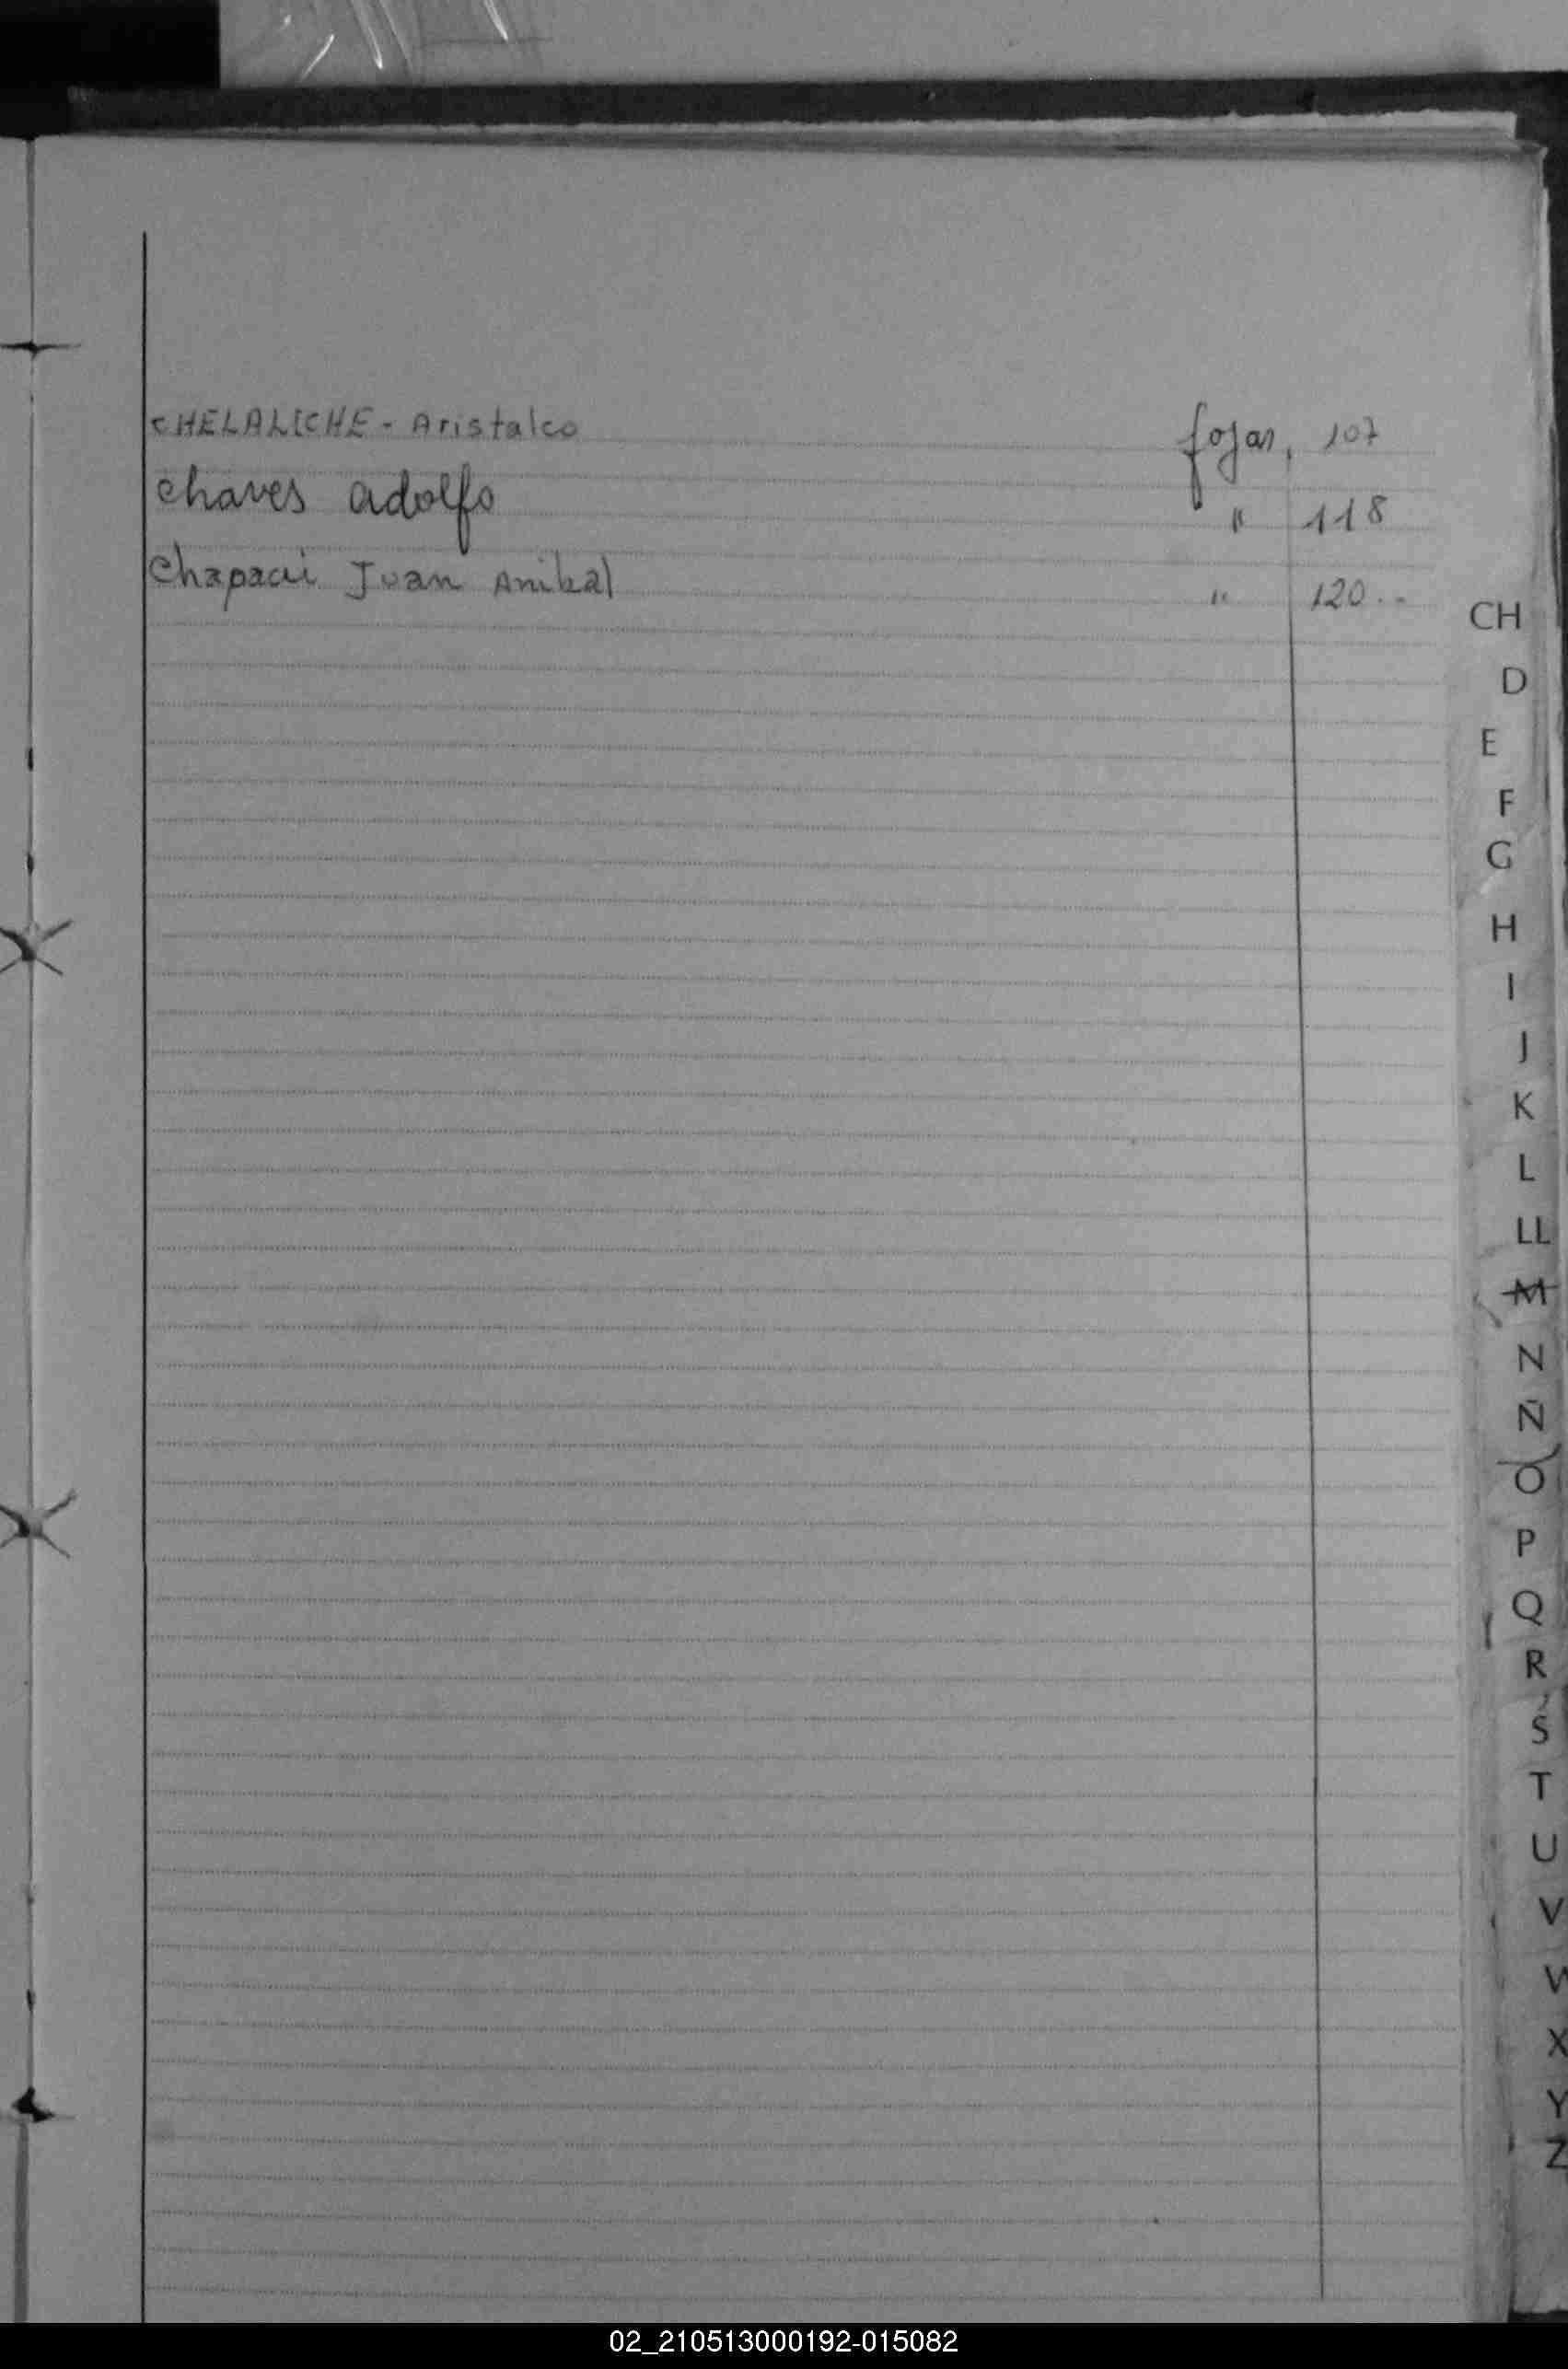 CHELALICHE - Aristalco fojas, 107
chaves adolfo " 118
Chapacú Juan Anibal " 120..
CH
D
E
F
G
H
I
J
K
L
LL
M
N
Ñ
O
P
Q
R
S
T
U
V
W
X
Y
Z
02_210513000192-015082